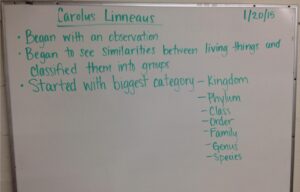 Carolus Linneaus 1/20/15
• Began with an observation
• Began to see similarities between living things and
classified them into groups
• Started with biggest category – Kingdom
– Phylum
– Class
– Order
– Family
– Genus
– Species